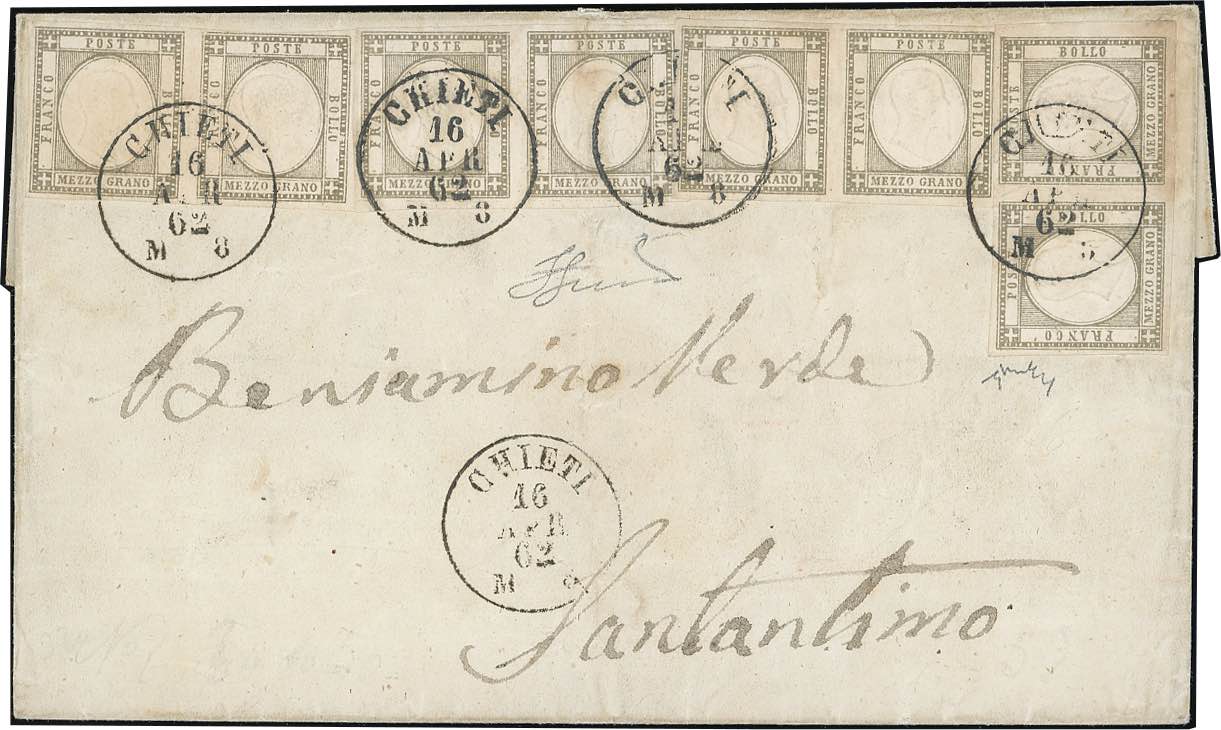 POSTE POSTE POSTE POSTE POSTE POSTE
FRANCO BOLLO FRANCO BOLLO FRANCO BOLLO FRANCO BOLLO FRANCO BOLLO
MEZZO GRANO MEZZO GRANO MEZZO GRANO MEZZO GRANO MEZZO GRANO MEZZO GRANO
BOLLO
MEZZO GRANO
FRANCO
BOLLO
MEZZO GRANO
FRANCO
CHIETI
16
APR
62
M 8
CHIETI
16
APR
62
M 8
62
M 8
CHIETI
16
APR
62
M
Beniamino Verde
CHIETI
16
APR
62
M 8
Santantimo